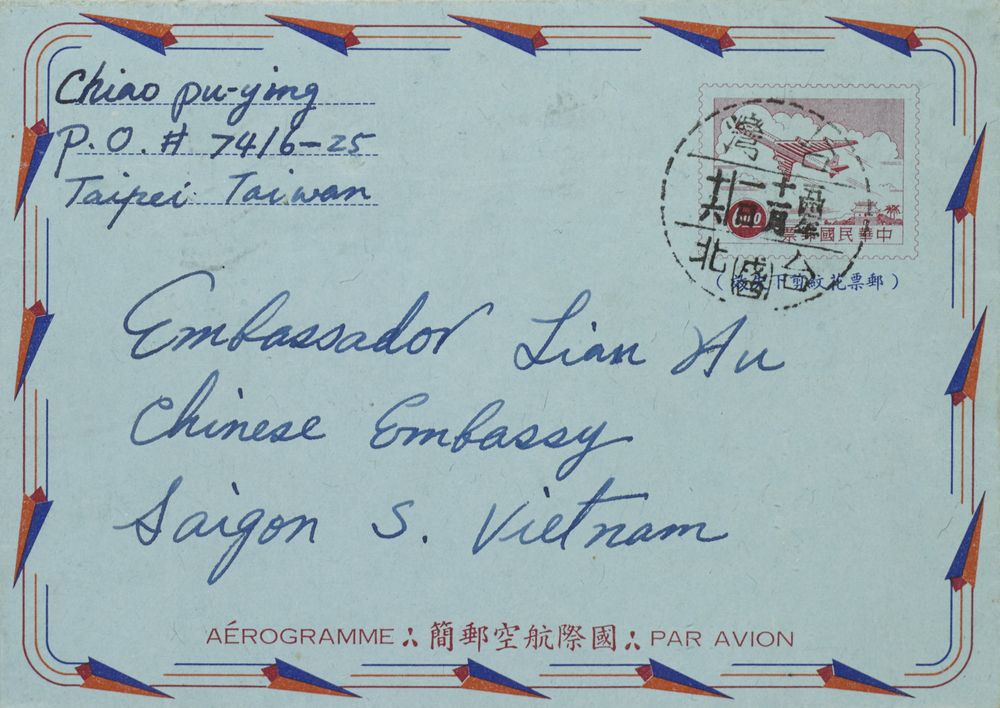 Chiao pu-ying
P.O. # 7416-25
Taipei Taiwan
台灣
600
中華民國郵票
台北
(郵票花紋剪下無效)
Embassador Lian Hu
Chinese Embassy
Saigon S. Vietnam
AÉROGRAMME ∴ 國際航空郵簡 ∴ PAR AVION